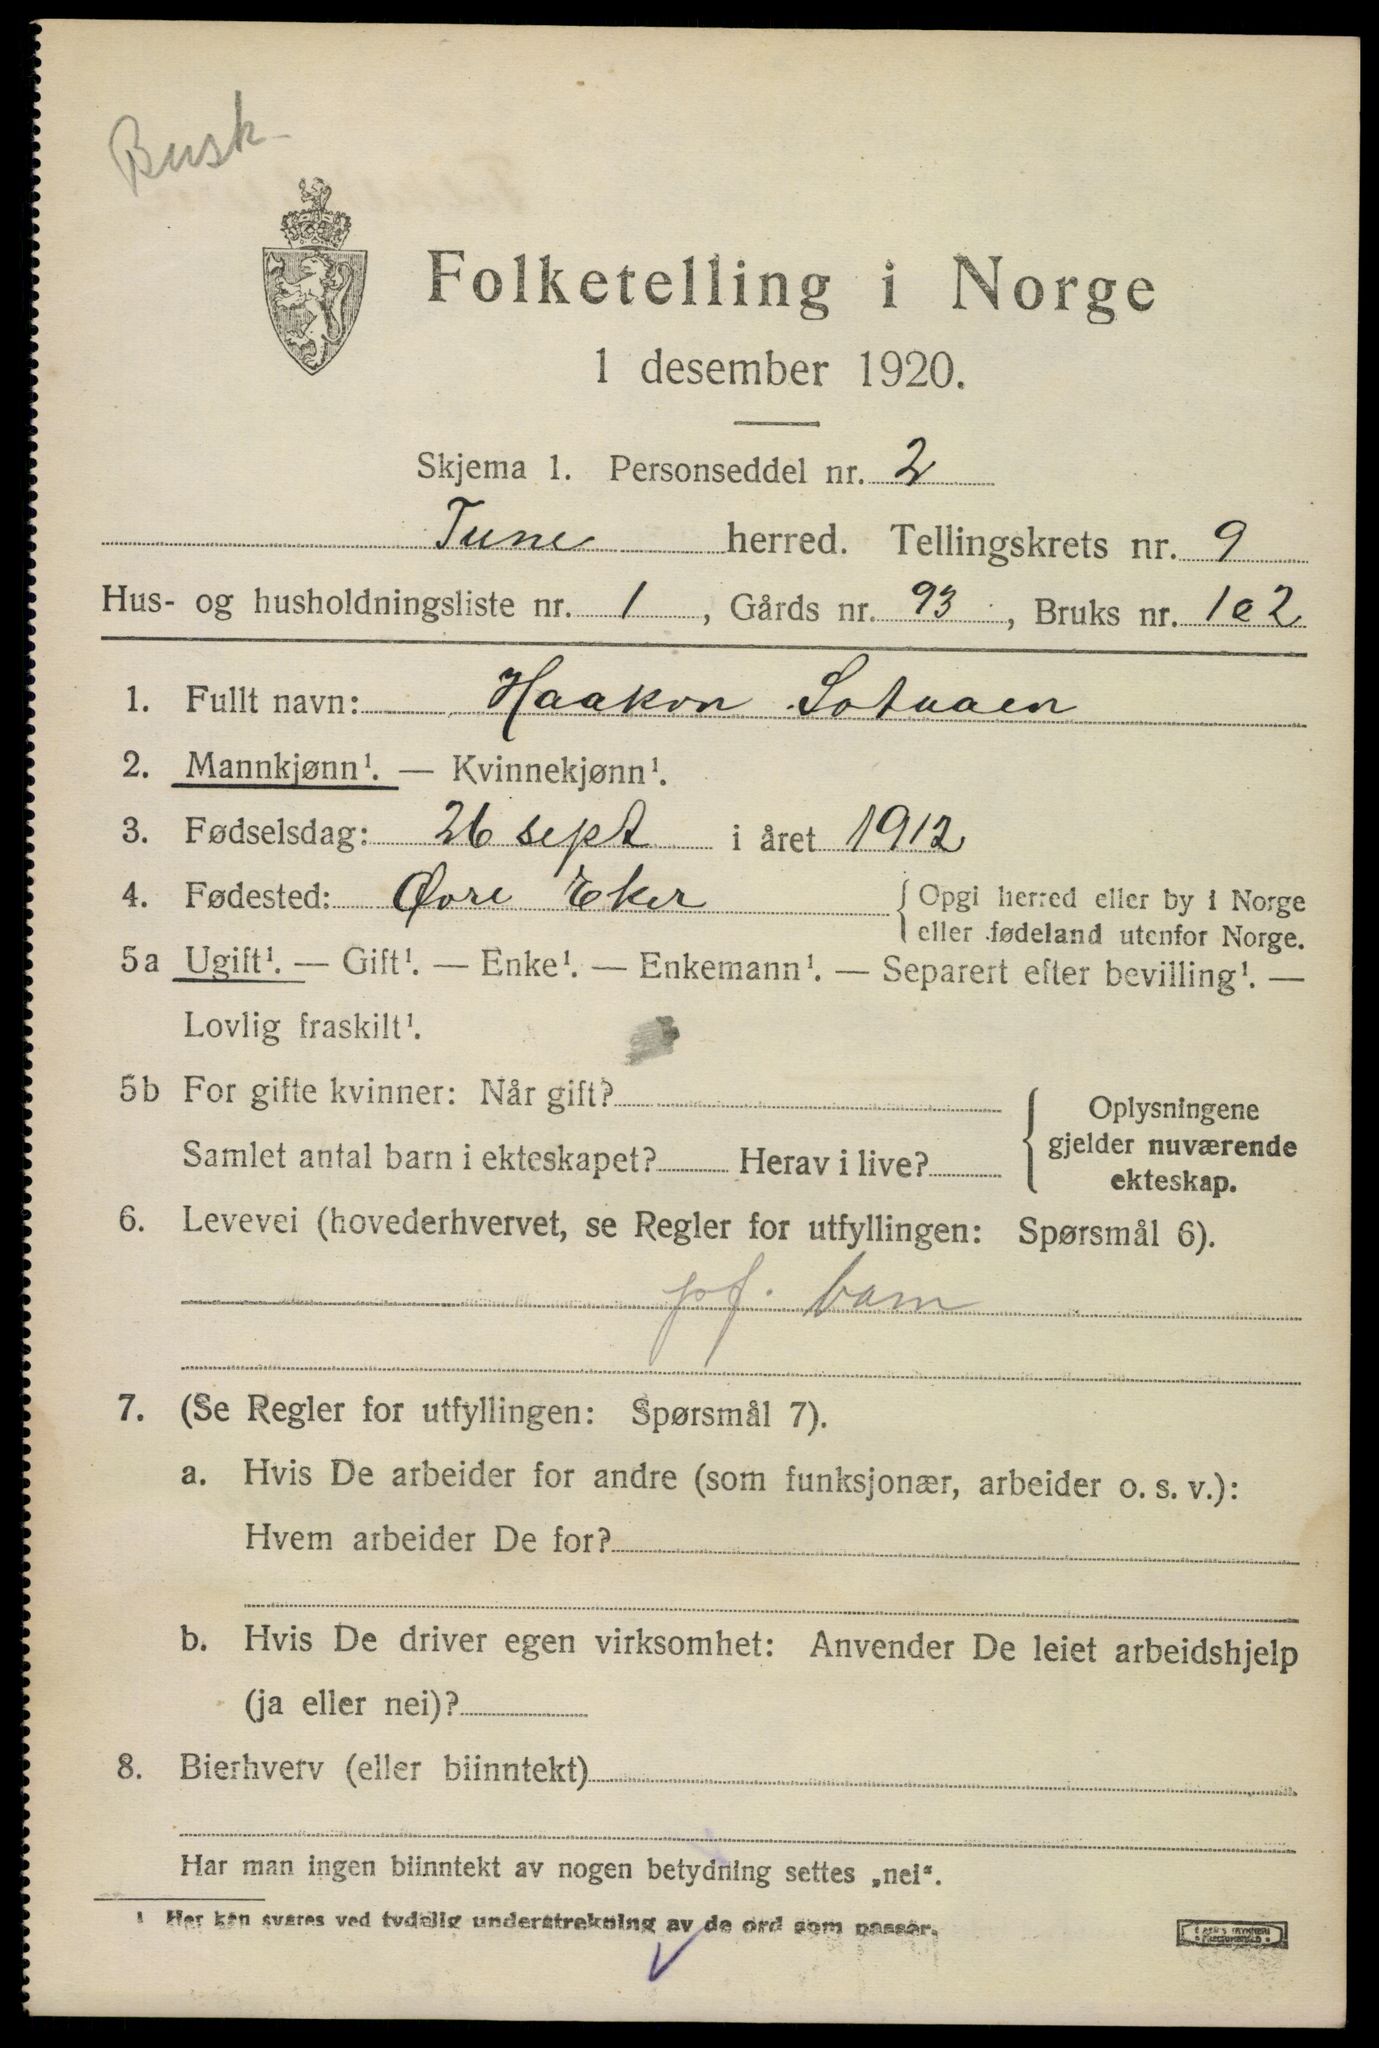 Busk
Folketelling i Norge
1 desember 1920.
Skjema 1. Personseddel nr. 2
Tune herred. Tellingskrets nr. 9
Hus- og husholdningsliste nr. 1, Gårds nr. 93, Bruks nr. 1 o 2
1. Fullt navn: Haakon
2. Mannkjønn¹. — Kvinnekjønn¹.
3. Fødselsdag: 26 sept i året 1912
4. Fødested: Øvre Eker { Opgi herred eller by i Norge
eller fødeland utenfor Norge.
5a Ugift¹. — Gift¹. — Enke¹. — Enkemann¹. — Separert efter bevilling¹. —
Lovlig fraskilt¹.
5b For gifte kvinner: Når gift?
Samlet antal barn i ekteskapet? Herav i live?
{ Oplysningene
gjelder nuværende
ekteskap.
6. Levevei (hovederhvervet, se Regler for utfyllingen: Spørsmål 6).
barn
7. (Se Regler for utfyllingen: Spørsmål 7).
a. Hvis De arbeider for andre (som funksjonær, arbeider o. s. v.):
Hvem arbeider De for?
b. Hvis De driver egen virksomhet: Anvender De leiet arbeidshjelp
(ja eller nei)?
8. Bierhverv (eller biinntekt)
Har man ingen biinntekt av nogen betydning settes „nei“.
¹ Her kan svares ved tydelig understrekning av de ord som passer.